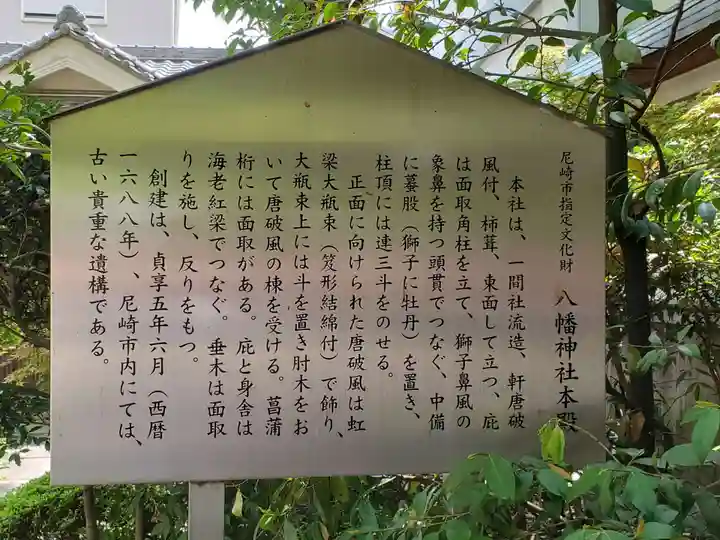 尼崎市指定文化財　八幡神社本殿
本社は、一間社流造、軒唐破
風付、柿葺、東面して立つ、庇
は面取角柱を立て、獅子鼻風の
象鼻を持つ頭貫でつなぐ、中備
に蟇股（獅子に牡丹）を置き、
柱頂には連三斗をのせる。
正面に向けられた唐破風は虹
梁大瓶束（笈形結綿付）で飾り、
大瓶束上には斗を置き肘木をお
いて唐破風の棟を受ける。菖蒲
桁には面取がある。庇と身舎は
海老紅梁でつなぐ。垂木は面取
りを施し、反りをもつ。
創建は、貞享五年六月（西暦
一六八八年）、尼崎市内にては、
古い貴重な遺構である。